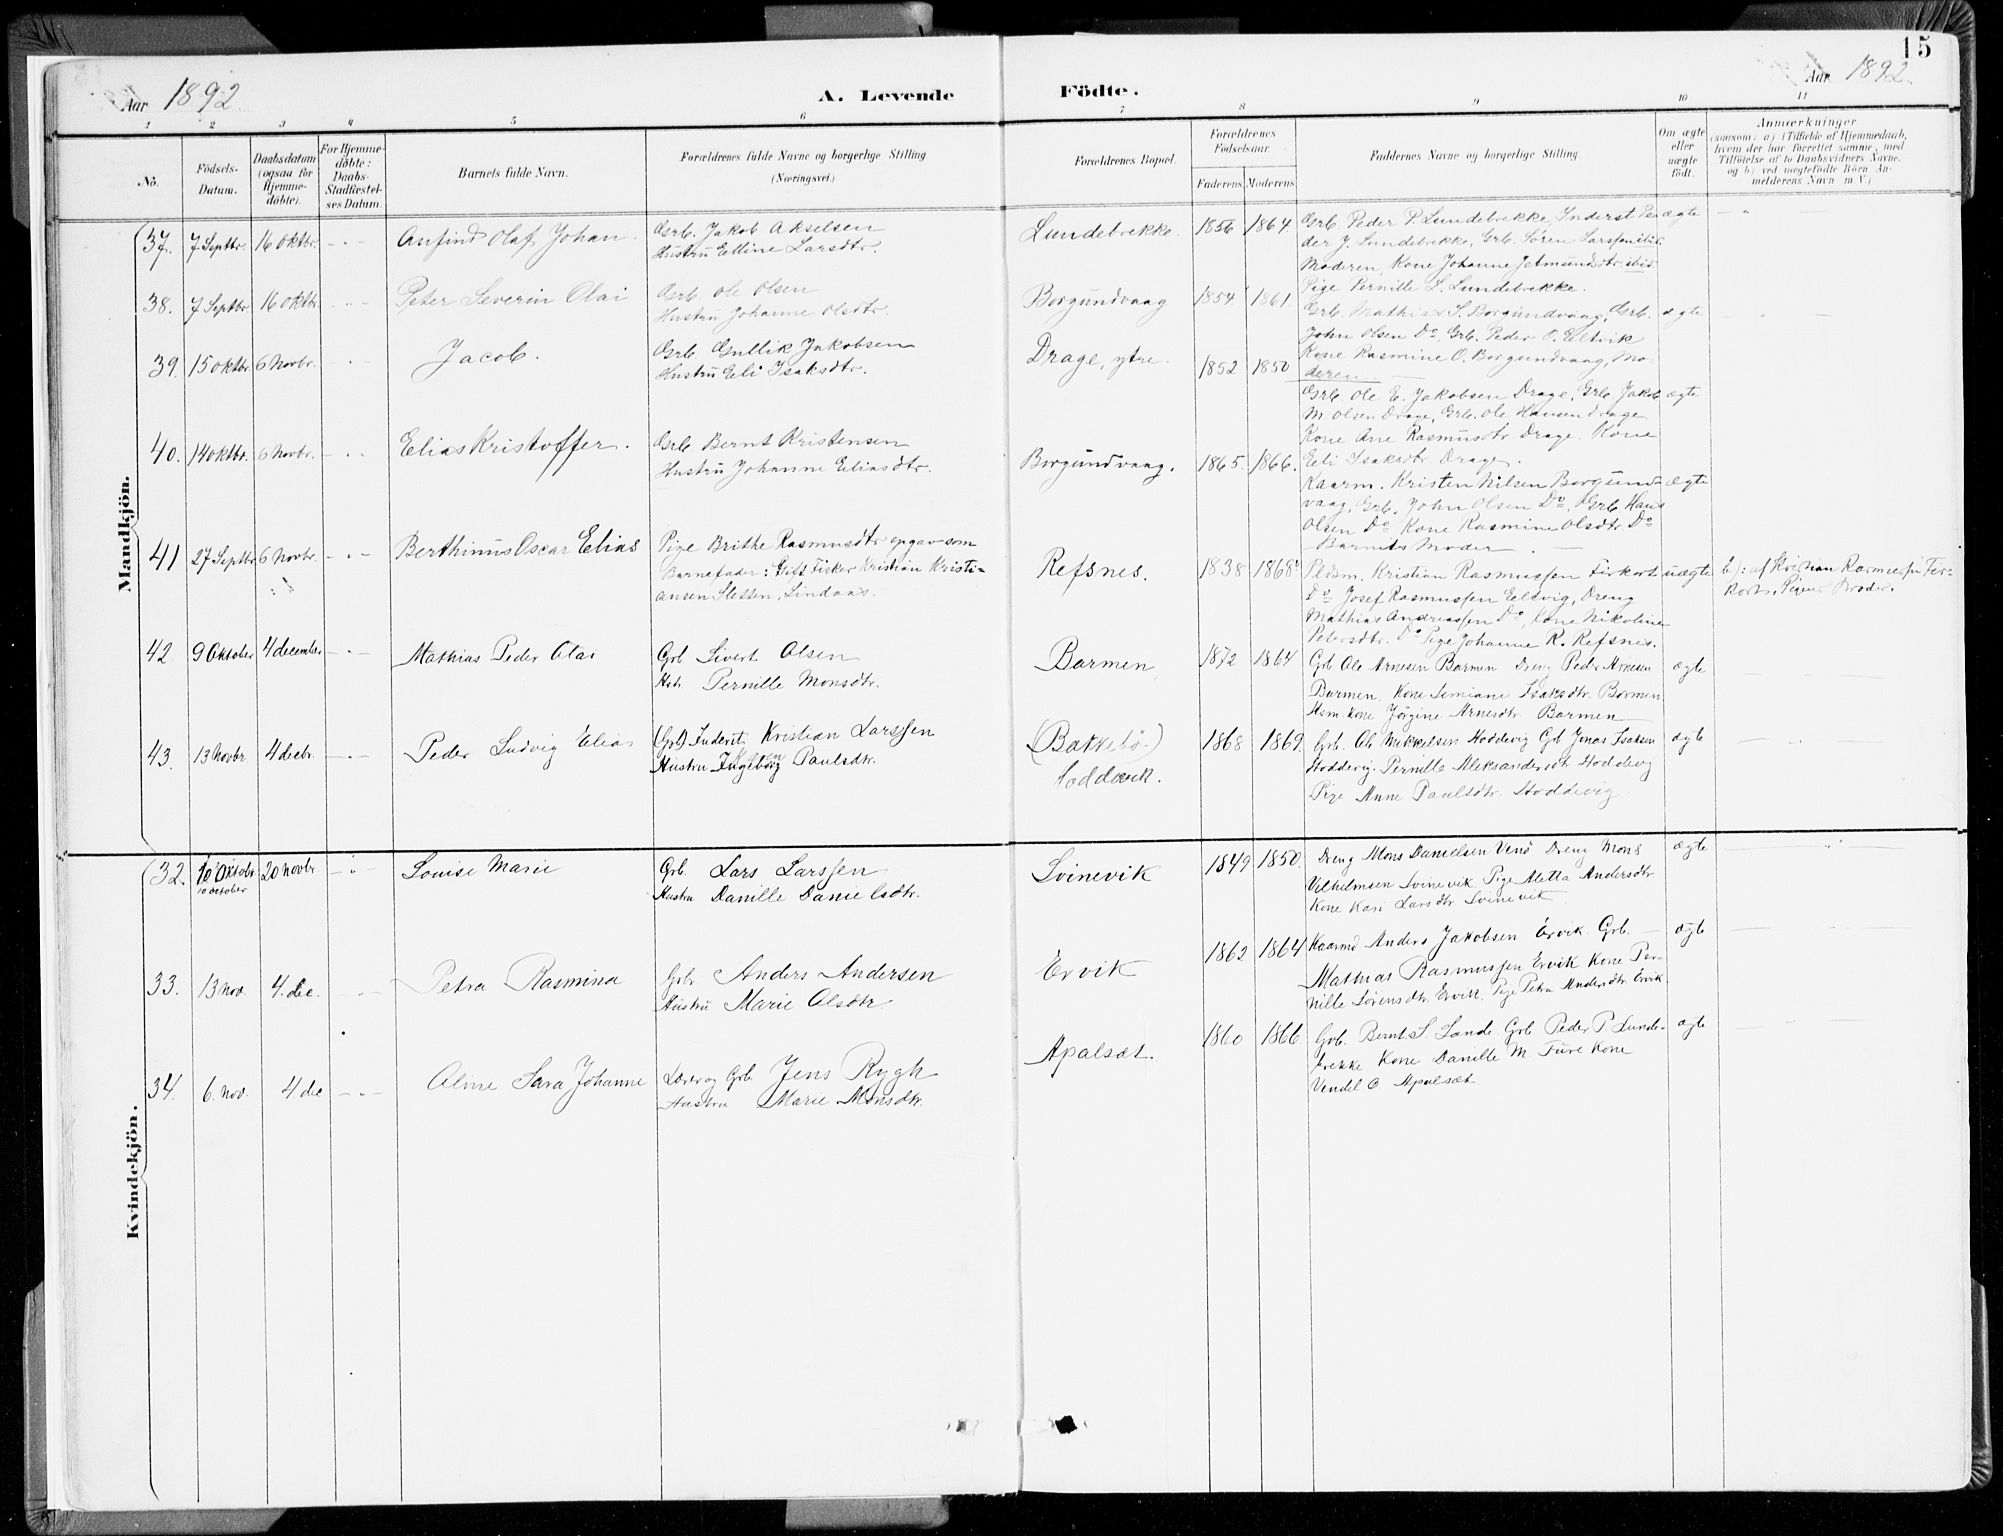 15
Aar 1892
A. Levende Födte.
Aar 1892.
1 2 3 4 5 6 7 8 9 10 11
No.
Födsels-
Datum.
Daabsdatum
(ogsaa for
Hjemme-
döbte).
For Hjemme-
döbte:
Daabs-
Stadfæstel-
ses Datum.
Barnets fulde Navn.
Forældrenes fulde Navne og borgerlige Stilling
(Næringsvei.)
Forældrenes Bopæl.
Forældrenes
Födselsaar.
Faderens. Moderens.
Faddernes Navne og borgerlige Stilling.
Om ægte
eller
uægte
födt.
Anmærkninger
(saasom: a) i Tilfælde af Hjemmedaab,
hvem der har forrettet samme, med
Tilföielse af to Daabsvidners Navne.
og b) ved uægtefödte Börn An-
melderens Navn m. V.)
Mandkjön.
37. 7 Septbr. 16 Oktbr. - " - Anfind Olaf Johan.
Grb. Jakob Akselsen
Hustru Elline Larsdtr.
Lundebrekke. 1856 1864
Grb. Peder P. Lundebrekke, Inderst Pe- ægte
der J. Lundebrekke, Grb. Sören Larssen ibid.
Moderen, Kone Johanne Jetmundsdtr. ibid.
Pige Pernille L. Lundebrekke.
38. 7 Septbr. 16 Oktbr. - " - Peter Severin Olai
Grb. Ole Olsen
Hustru Johanne Olsdtr.
Borgundvaag 1854 1861.
Grb. Mathias S. Borgundvaag, Grb. ægte
John Olsen Do, Grb. Peder O. Eltvik
Kone Rasmine O. Borgundvaag, Mo-
deren
39. 15 Oktbr. 6 Novbr. - " - Jacob.
Grb. Gullik Jakobsen
Hustru Eli Isaksdtr.
Drage, ytre. 1852 1850
Grb. Ole E. Jakobsen Drage, Grb. Jakob ægte
M. Olsen Drage, Grb. Ole Hansen Drage
Kone Ane Rasmusdtr. Drage. Kone
Eli Isaksdtr. Drage.
40. 14 Oktbr. 6 Novbr. - " - Elias Kristoffer.
Grb. Bernt Kristensen
Hustru Johanne Eliasdtr.
Borgundvaag. 1865. 1866.
Kaarm. Kristen Nilsen Borgund- ægte
vaag, Grb. John Olsen Do, Grb. Hans
Olsen Do Kone Rasmine Olsdtr. Do
Barnets Moder.
41 27 Septbr. 6 Novbr. - " - Berthinus Oscar Elias
Pige Brithe Rasmusdtr. opgav som
Barnefader: Gift Fisker Kristian Kristi-
ansen Lindaas.
Refsnes. 1838 1868
Pldsm. Kristian Rasmussen uægte
Do Josef Rasmussen Eltvig, Dreng
Mathias Andreassen Do, Kone Nikoline
Petersdtr. Do Pige Johanne R. Refsnes.
b): af Kristian Rasmussen
Pigens Broder.
42. 9 Oktober 4 december - " - Mathias Peder Olai
Grb. Sivert Olsen
Hstr. Pernille Monsdtr.
Barmen 1872 1864
Grb Ole Arnesen Barmen Dreng Peder Arnesen ægte
Barmen. Kone Semiane Isaksdtr. Barmen
Hsm. Kone Jörgine Arnesdtr Barmen
43. 13 Novbr. 4 decbr. - " - Peder Ludvig Elias
(Grb) Inderst Kristian Larssen
Hustru Ingeborg Paulsdtr.
(Bakkebö.) 1868 1869.
Hoddevik.
Grb. Ole Mikkelsen Hoddevig Grb Jonas Isaksen ægte
Hoddevig. Pernille Aleksandersdtr Hoddevig
Pige Anne Paulsdtr. Hoddevig
Kvindekjön.
32. 10 Oktobr 20 Novbr - " - Louise Marie
10 October
Grb. Lars Larssen
Hustru Danille Danielsdtr.
Svinevik 1849 1850.
Dreng Mons Danielsen Venö Dreng Mons ægte
Vilhelmsen Svinevik. Pige Aletta Andersdtr
Kone Kari Larsdtr Svinevik
33. 13 nov. 4. dec. - " - Petra Rasmina
Grb. Anders Andersen
Hustru Marie Olsdtr.
Ervik 1862 1864
Kaarmd Anders Jakobsen Ervik. Grb. ægte
Mathias Rasmussen Ervik Kone Per-
nille Sörensdtr. Ervik. Pige Petra Andersdtr. Ervik.
34. 6. nov. 4 dec - " - Aline Sara Johanne
Lærer og Grb. Jens Rygh
Hustru Marie Monsdtr.
Apalsæt. 1860 1866
Grb. Bernt S. Sande Grb Peder P. Lunde- ægte
brekke Kone Danille M. Fure Kone
Vendel O Apalsæt